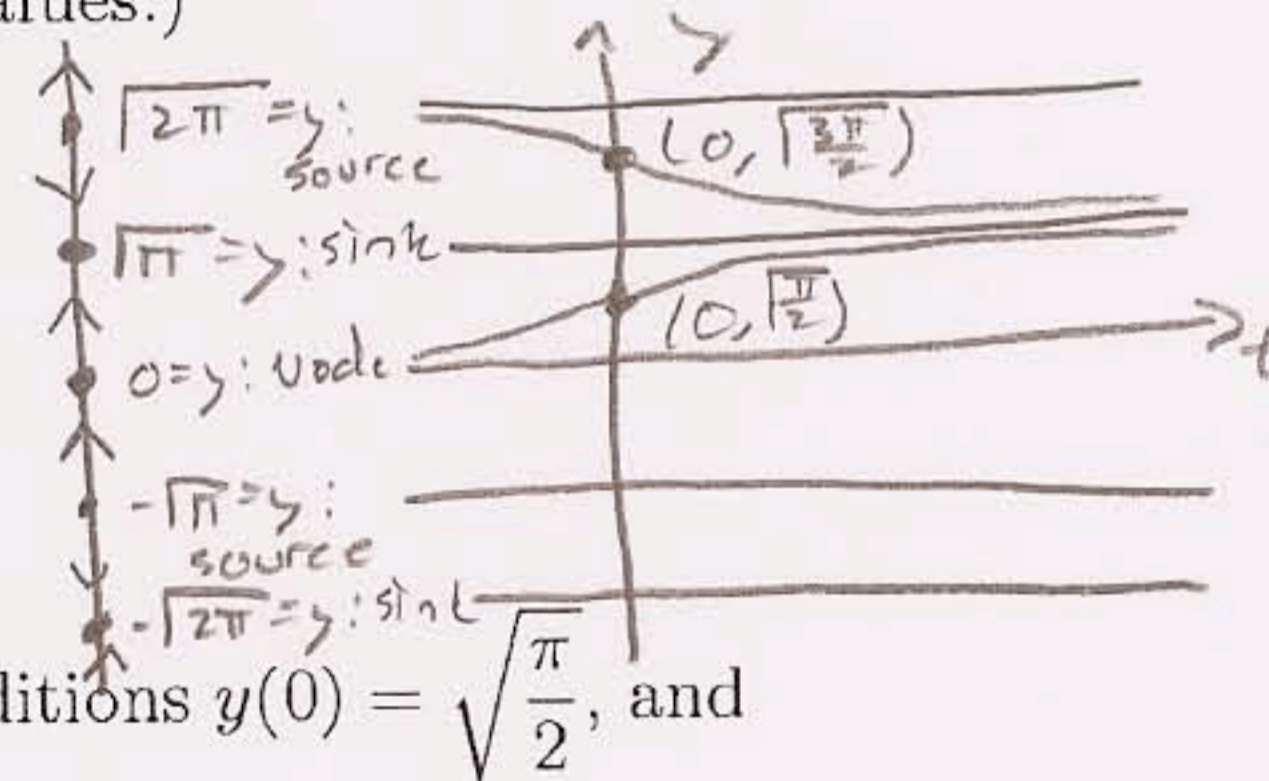 alues.)
y
√2π = y:
source
(0, √3π/2)
√π = y: sink
(0, √π/2)
0 = y: node
t
-√π = y:
source
-√2π = y: sink
ditions y(0) = √π/2, and